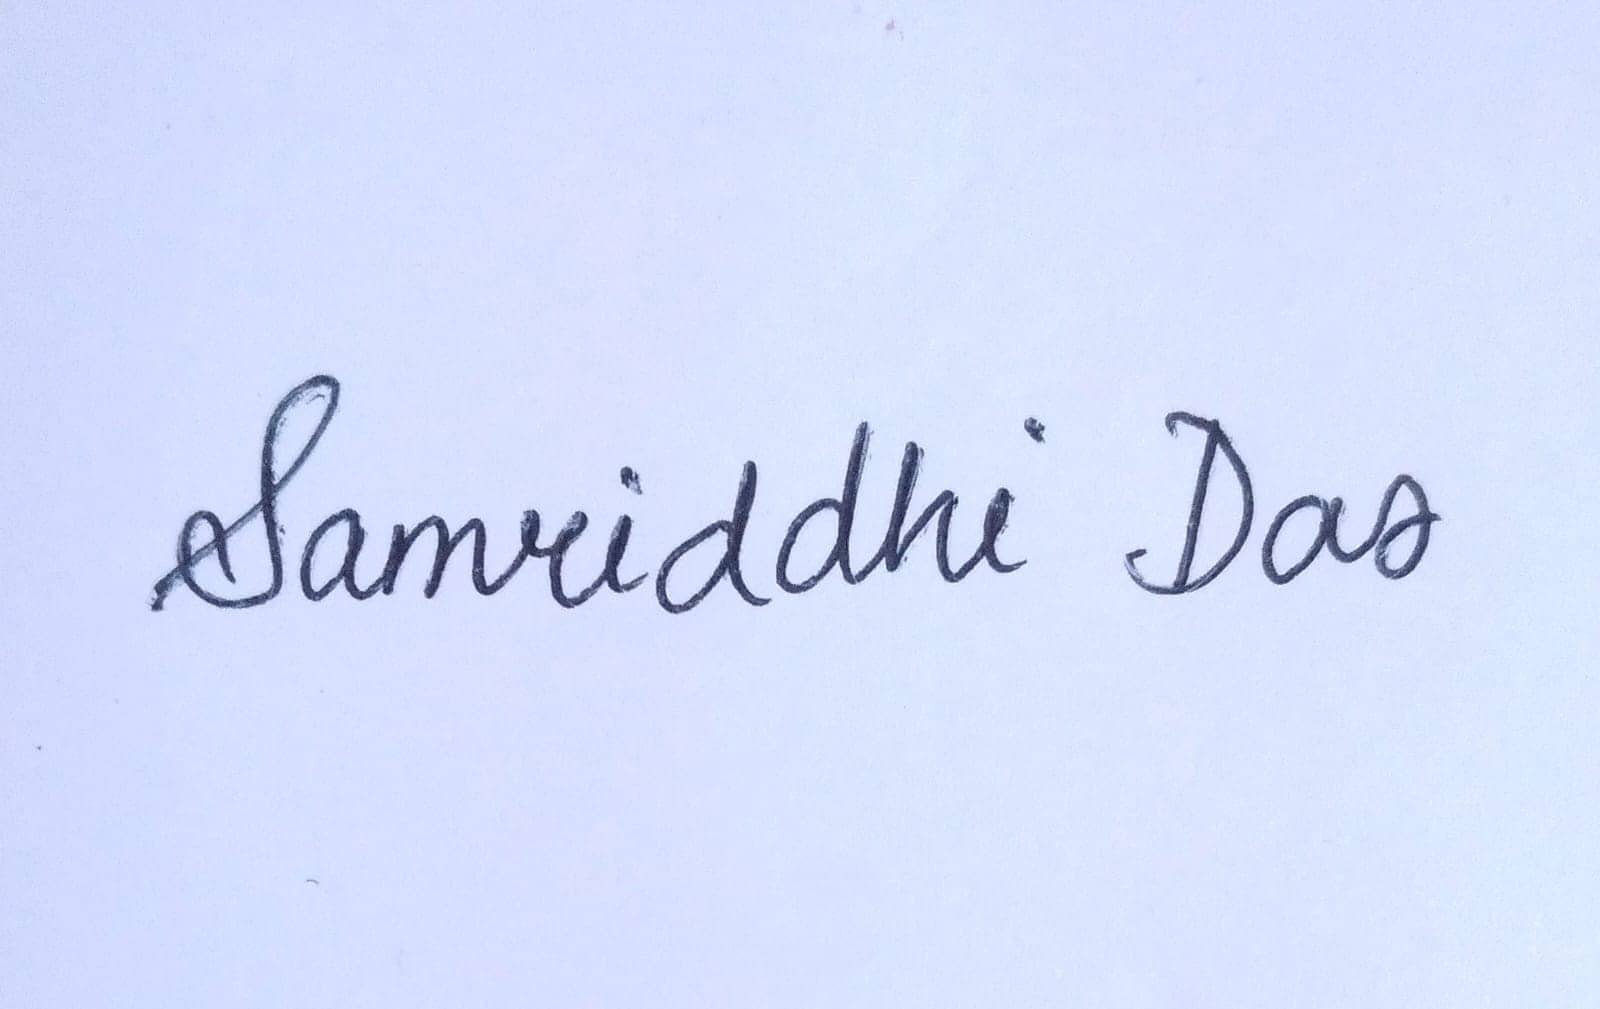 Samriddhi Das